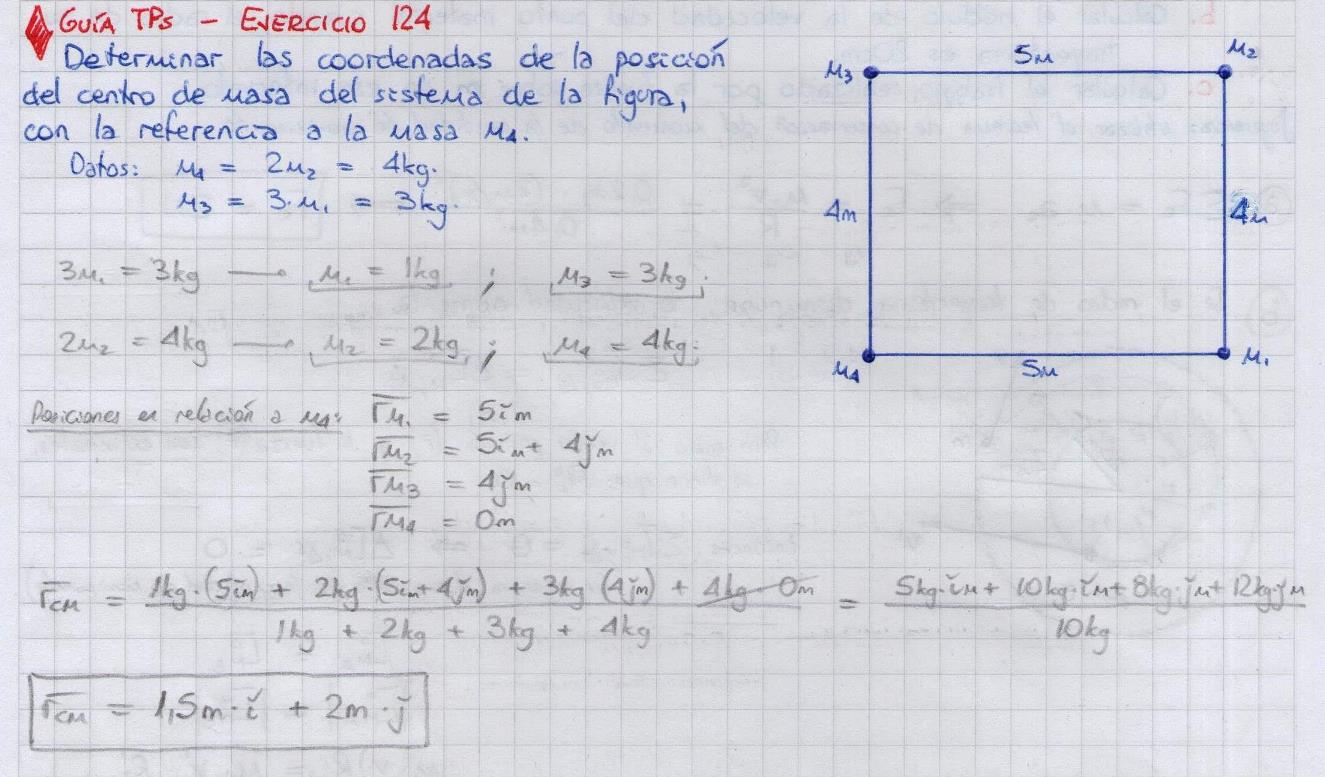 GUÍA TPs - EJERCICIO 124
Determinar las coordenadas de la posición
del centro de masa del sistema de la figura,
con la referencia a la masa m4.
Datos: m4 = 2m2 = 4kg.
m3 = 3·m1 = 3kg.
m3 5m m2
4m 4m
m4 5m m1
3m1 = 3kg → m1 = 1kg ; m3 = 3kg ;
2m2 = 4kg → m2 = 2kg ; m4 = 4kg ;
Posiciones en relación a m4: rm1 = 5ǐm
rm2 = 5ǐm + 4ǰm
rm3 = 4ǰm
rm4 = 0m
rcm = 1kg·(5ǐm) + 2kg·(5ǐm+4ǰm) + 3kg (4ǰm) + 4kg·0m = 5kg·ǐm + 10kg·ǐm + 8kg·ǰm + 12kg·ǰm
1kg + 2kg + 3kg + 4kg 10kg
rcm = 1,5m·ǐ + 2m·ǰ